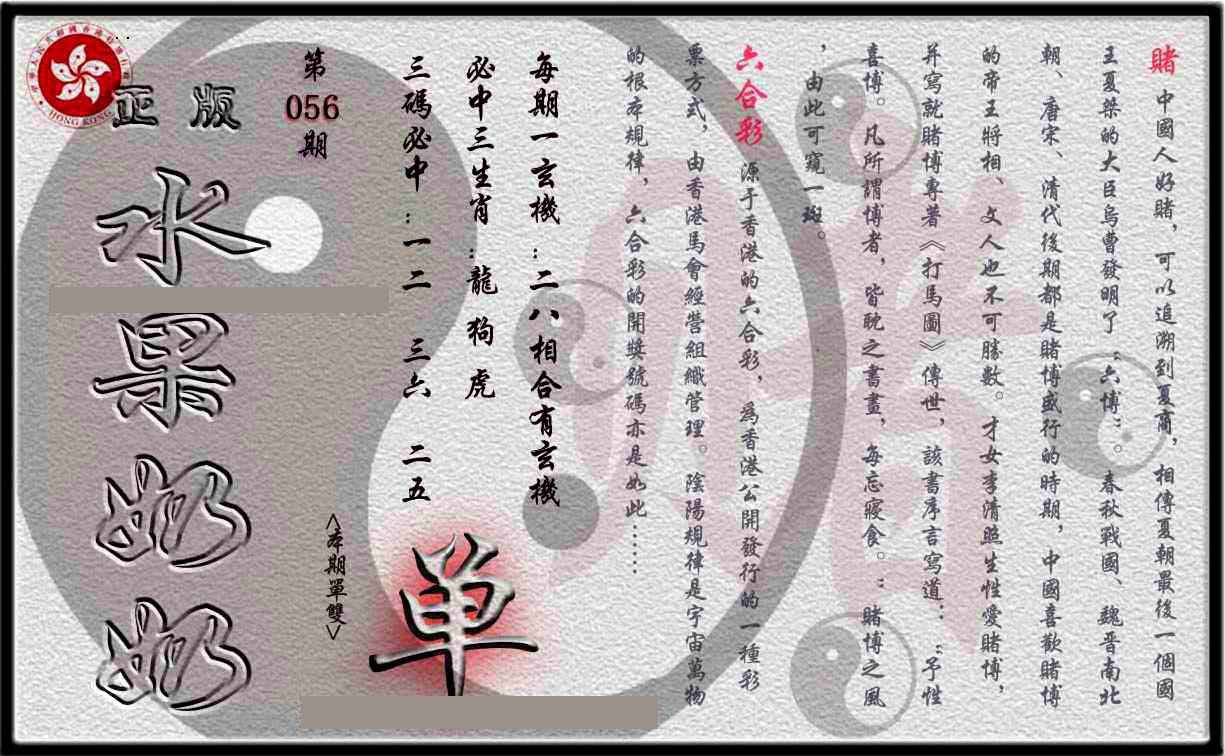 賭 中國人好賭，可以追溯到夏商，相傳夏朝最後一個國
王夏桀的大臣烏曹發明了“六博”。春秋戰國、魏晉南北
朝、唐宋、清代後期都是賭博盛行的時期，中國喜歡賭博
的帝王將相、文人也不可勝數。才女李清照生性愛賭博，
并寫就賭博專著《打馬圖》傳世，該書序言寫道：“予性
喜博。凡所謂博者，皆耽之書畫，每忘寢食。”賭博之風
，由此可窺一斑。
六合彩 源于香港的六合彩，為香港公開發行的一種彩
票方式，由香港馬會經營組織管理。陰陽規律是宇宙萬物
的根本規律，六合彩的開獎號碼亦是如此……
每期一玄機：二八相合有玄機
必中三生肖：龍狗虎
三碼必中：一二 三六 二五
<本期單雙>
单
第056期
正版
水果奶奶
HONG KONG